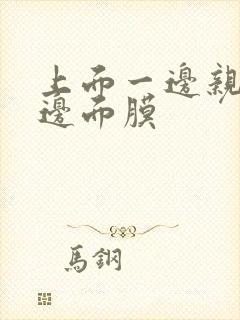 上而一邊親
邊而膜
馬鋼